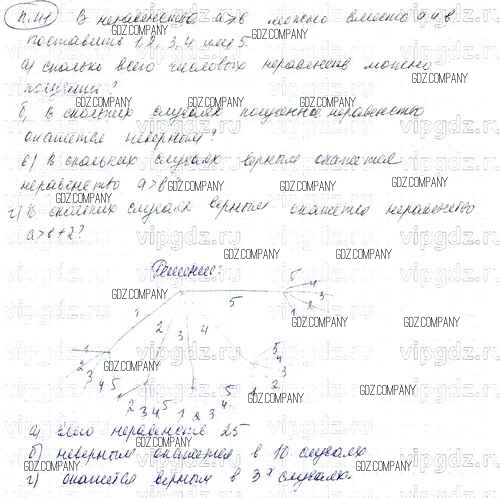 П.14 В неравенство а≥в можно вместо а и в
поставить 1, 2, 3, 4 или 5.
а) сколько всего числовых неравенств можно
получить?
б) в скольких случаях полученное неравенство
окажется неверным?
в) в скольких случаях верным окажется
неравенство а>в
г) в скольких случаях верным окажется неравенство
а>в+2?
Решение:
5
4
3
1 2
1 5
2 3 4
1
2 3 4 5
5
4
3
2
1
2 3 4 5 1 2 3 4 5
а) всего неравенств 25
б) неверным окажется в 10 случаях
г) окажется верным в 3х случаях.
GDZ.COMPANY
vipgdz.ru